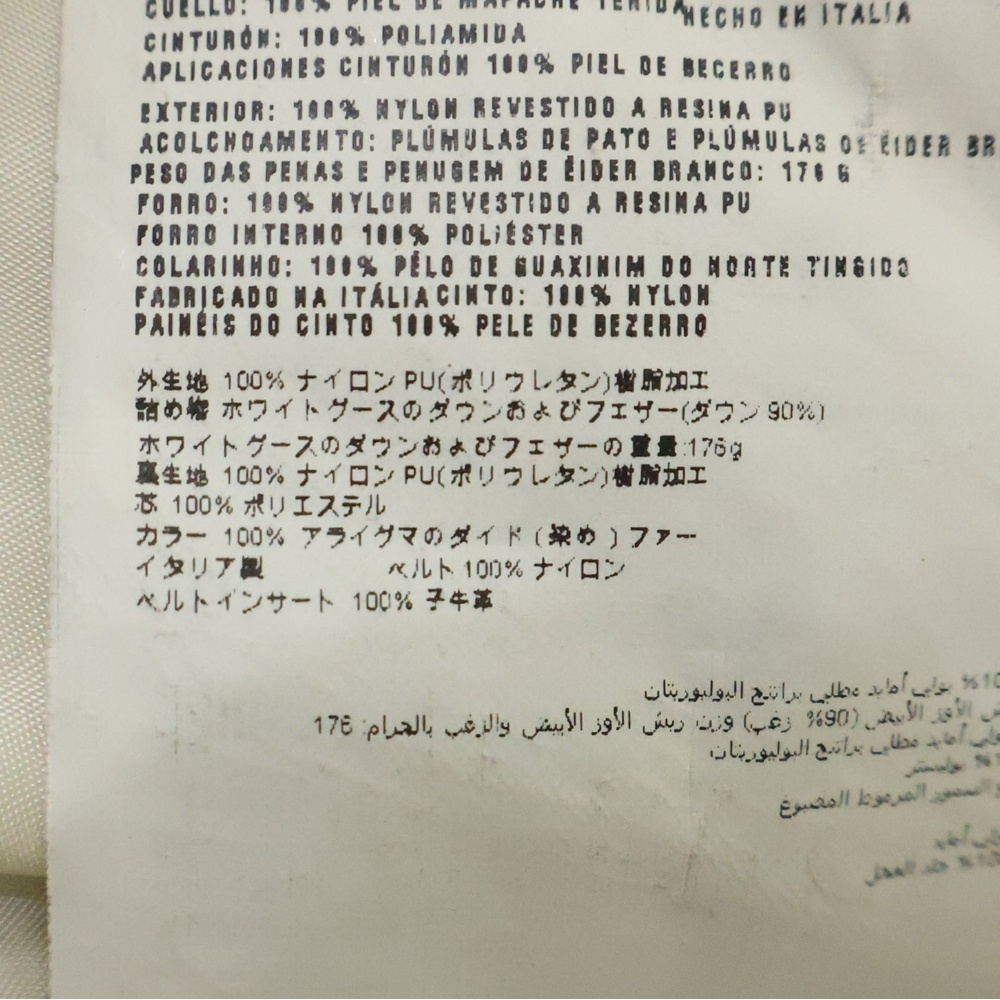 CUELLO: 100% PIEL DE MAPACHE TEÑIDA HECHO EN ITALIA
CINTURÓN: 100% POLIAMIDA
APLICACIONES CINTURÓN 100% PIEL DE BECERRO
EXTERIOR: 100% NYLON REVESTIDO A RESINA PU
ACOLCHOAMENTO: PLÚMULAS DE PATO E PLÚMULAS DE ÉIDER BR
PESO DAS PENAS E PENUGEM DE ÉIDER BRANCO: 176 G
FORRO: 100% NYLON REVESTIDO A RESINA PU
FORRO INTERNO 100% POLIÉSTER
COLARINHO: 100% PÊLO DE GUAXINIM DO NORTE TINGIDO
FABRICADO NA ITÁLIA CINTO: 100% NYLON
PAINÉIS DO CINTO 100% PELE DE BEZERRO
外生地 100% ナイロン PU(ポリウレタン)樹脂加工
詰め物 ホワイトグースのダウンおよびフェザー(ダウン 90%)
ホワイトグースのダウンおよびフェザーの重量:176g
裏生地 100% ナイロン PU(ポリウレタン)樹脂加工
芯 100% ポリエステル
カラー 100% アライグマのダイド (染め) ファー
イタリア製 ベルト 100% ナイロン
ベルトインサート 100% 子牛革
بولي أمايد مطلي براتنج البوليوريتان
الأوز الأبيض (90% زغب) وزن ريش الأوز الأبيض والزغب بالجرام: 176
أمايد مطلي براتنج البوليوريتان
بوليستر
السمور المرموط المصبوغ
جلد العجل